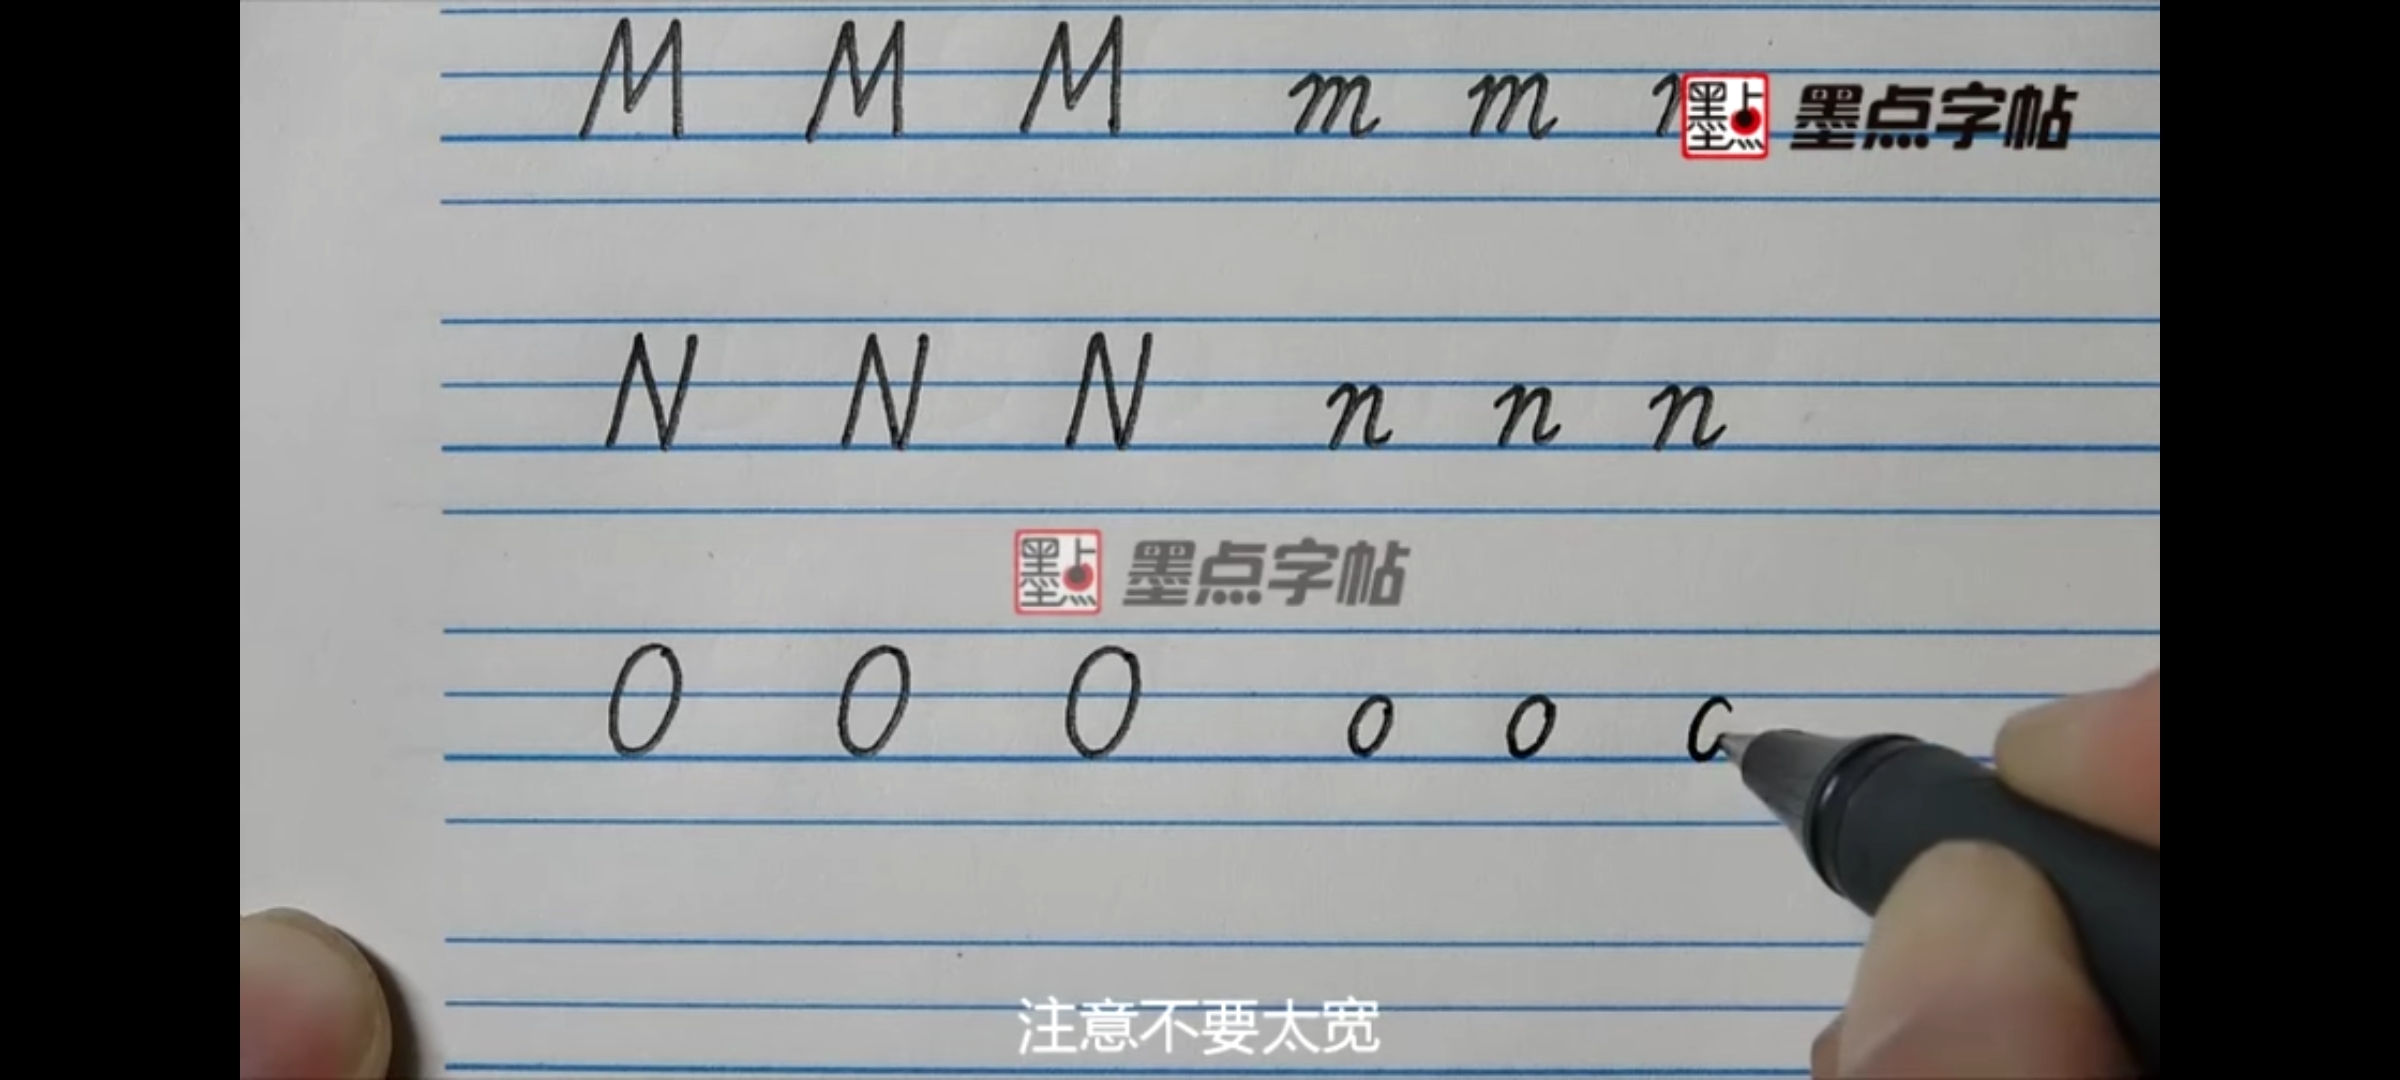 M M M m m
墨点 墨点字帖
N N N n n n
墨点 墨点字帖
O O O o o
注意不要太宽